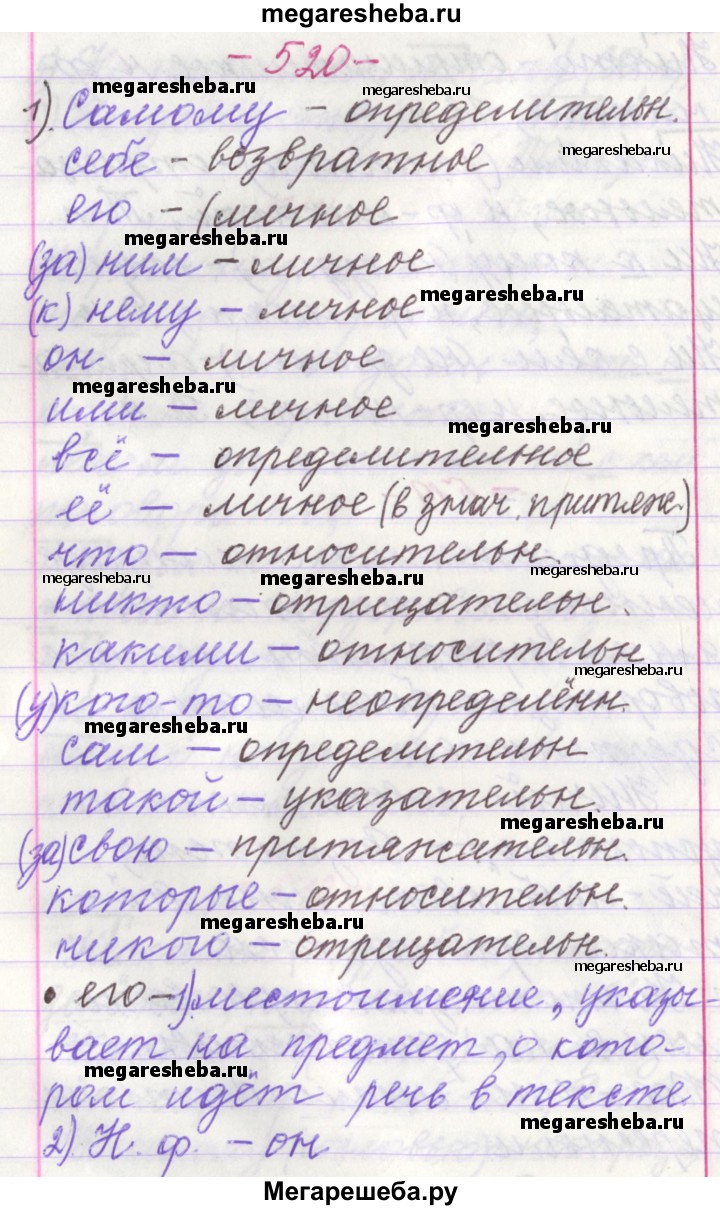 megaresheba.ru
- 520 -
megaresheba.ru
megaresheba.ru
1). Самому - определительн.
megaresheba.ru
себе - возвратное
его - (личное
megaresheba.ru
(за) ним - личное
megaresheba.ru
(к) нему - личное
он - личное
megaresheba.ru
ими - личное
megaresheba.ru
всё - определительное
её - личное (в знач. притяж.)
что - относительн.
megaresheba.ru
megaresheba.ru
megaresheba.ru
никто - отрицательн.
какими - относительн
megaresheba.ru
(у) кого-то - неопределённ.
megaresheba.ru
сам - определительн
такой - указательн.
megaresheba.ru
(за) свою - притяжательн.
megaresheba.ru
которые - относительн.
megaresheba.ru
никого - отрицательн.
megaresheba.ru
• его - 1). местоимение, указы-
вает на предмет, о кото-
megaresheba.ru
ром идёт речь в тексте
megaresheba.ru
2). Н. ф. - он
Мегарешеба.ру